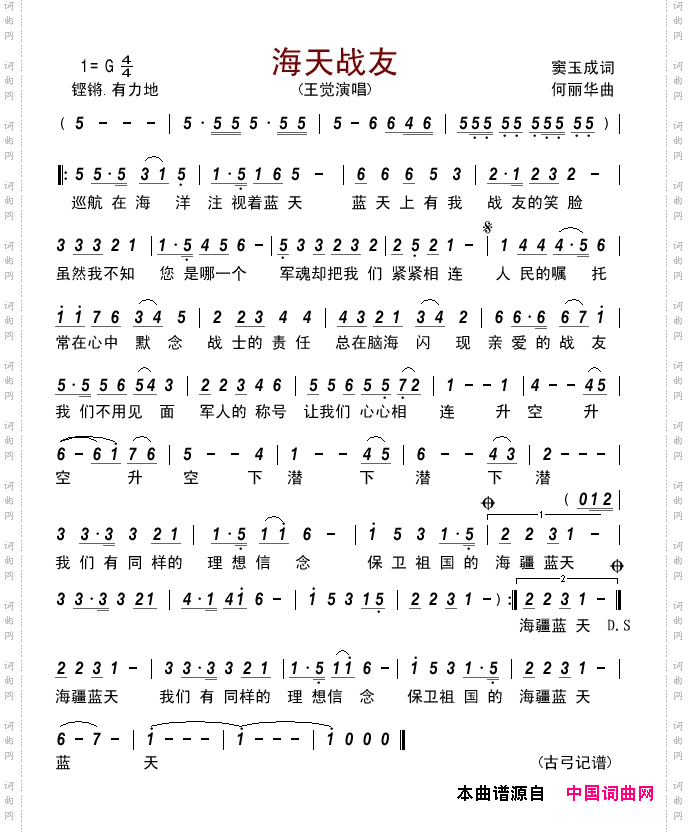 海天战友
1= G 4/4
窦玉成词
铿锵.有力地
(王觉演唱)
何丽华曲
( 5 - - - | 5 · 5 5 5 · 5 5 | 5 - 6 6 4 6 | 5 5 5 5 5 5 5 5 5 5 ) |
|: 5 5 · 5 3 1 5 | 1 · 5 1 6 5 - | 6 6 6 5 3 | 2 · 1 2 3 2 - |
巡航 在 海 洋 注 视着蓝 天 蓝 天 上 有 我 战 友的笑 脸
3 3 3 2 1 | 1 · 5 4 5 6 - | 5 3 3 3 2 2 | 2 5 2 1 - | 1 4 4 4 · 5 6 |
虽然我不知 您 是哪一个 军魂却把我 们 紧紧相 连 人 民的嘱 托
1 1 7 6 3 4 5 | 2 2 3 4 4 | 4 3 2 1 3 4 2 | 6 6 · 6 6 7 1 |
常在心中 默 念 战 士的 责 任 总在脑海 闪 现 亲 爱 的 战 友
5 · 5 5 6 5 4 3 | 2 2 3 4 6 | 5 5 6 5 5 7 2 | 1 - - 1 | 4 - - 4 5 |
我 们不用见 面 军人的 称号 让我们 心心相 连 升 空 升
6 - 6 1 7 6 | 5 - - 4 | 1 - - 4 5 | 6 - - 4 3 | 2 - - - |
空 升 空 下 潜 下 潜 下 潜
( 0 1 2
3 3 · 3 3 2 1 | 1 · 5 1 1 6 - | 1 5 3 1 · 5 | 1 2 2 3 1 - |
我 们 有 同 样的 理 想 信 念 保 卫 祖 国 的 海 疆 蓝天
3 3 · 3 3 2 1 | 4 · 1 4 1 6 - | 1 5 3 1 5 | 2 2 3 1 - ) :| 2 2 2 3 1 - ||
海疆蓝 天 D.S
2 2 3 1 - | 3 3 · 3 3 2 1 | 1 · 5 1 1 6 - | 1 5 3 1 · 5 | 2 2 3 1 - |
海疆蓝天 我们 有 同样的 理 想信 念 保卫祖 国 的 海疆蓝 天
6 - 7 - | 1 - - - | 1 - - - | 1 0 0 0 ||
蓝 天
(古弓记谱)
本曲谱源自 中国词曲网